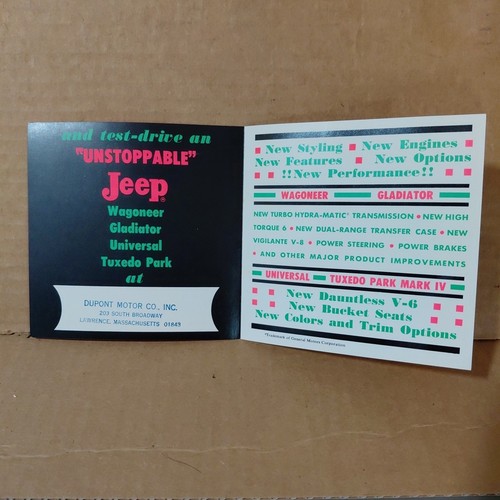 and test-drive an
"UNSTOPPABLE"
Jeep®
Wagoneer
Gladiator
Universal
Tuxedo Park
at
DUPONT MOTOR CO., INC.
203 SOUTH BROADWAY
LAWRENCE, MASSACHUSETTS 01843
New Styling ▪ New Engines
New Features ▪ New Options
!!New Performance!!
WAGONEER GLADIATOR
NEW TURBO HYDRA-MATIC* TRANSMISSION • NEW HIGH
TORQUE 6 • NEW DUAL-RANGE TRANSFER CASE • NEW
VIGILANTE V-8 • POWER STEERING • POWER BRAKES
• AND OTHER MAJOR PRODUCT IMPROVEMENTS
UNIVERSAL TUXEDO PARK MARK IV
New Dauntless V-6
New Bucket Seats
New Colors and Trim Options
*Trademark of General Motors Corporation